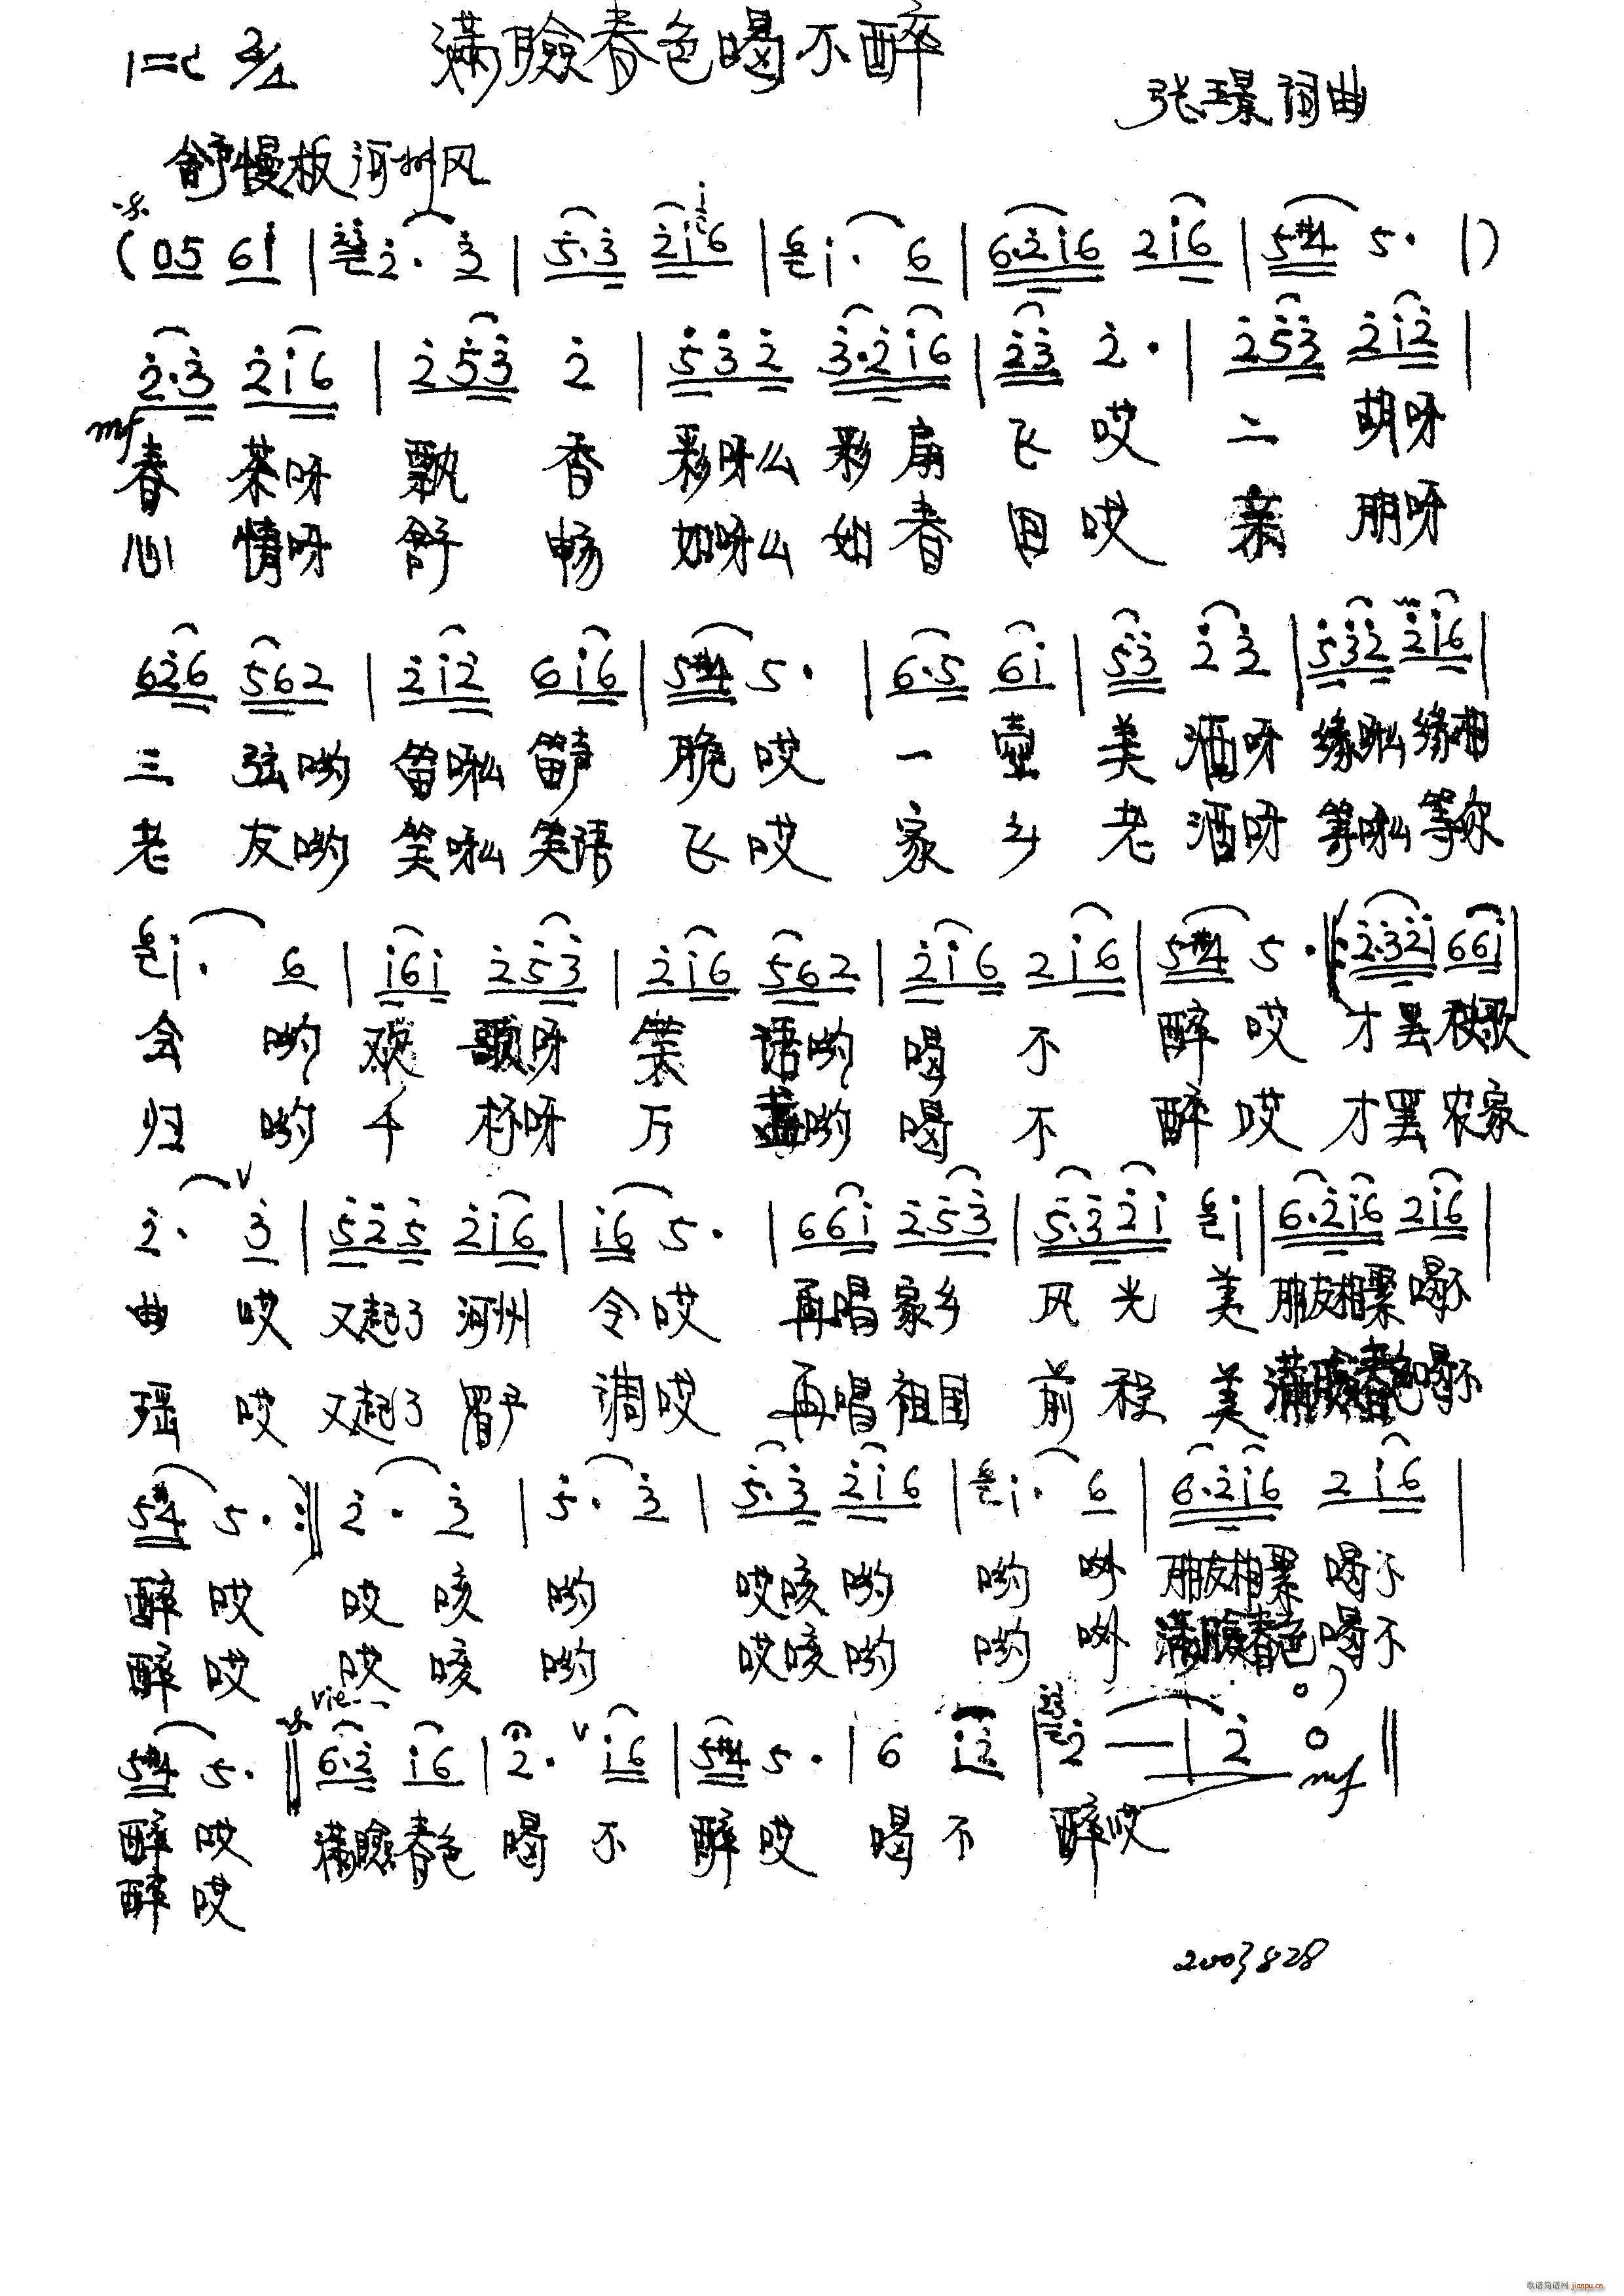 1=C 2/4 满臉春色喝不醉
张璟词曲
舒慢板 河州风
(05 6i | 2· 3 | 5·3 2i6 | i· 6 | 6·2i6 2i6 | 5#4 5· |)
2·3 2i6 | 253 2 | 532 3·2i6 | 23 2· | 253 2i2 |
mf
春 茶呀 飘 香 彩呀么 彩扇 飞 哎 二 胡呀
心 情呀 舒 畅 如呀么 如春 回 哎 亲 朋呀
626 562 | 2i2 6i6 | 5#4 5· | 6·5 6i | 53 2 3 | 532 2i6 |
三 弦哟 笛呀么 笛声 脆 哎 一 壶 美 酒呀 缘呀么 缘曲
老 友哟 笑呀么 笑语 飞 哎 家 乡 老 酒呀 等呀么 等你
i· 6 | i6i 253 | 2i6 562 | 2i6 2i6 | 5#4 5· |: 2·32i 66i |
会 哟 欢 歌呀 笑 语哟 喝 不 醉 哎 才罢秧歌
归 哟 千 杯呀 万 盏哟 喝 不 醉 哎 才罢农家
2· 3 | 525 2i6 | i6 5· | 66i 253 | 5·32i i | 6·2i6 2i6 |
曲 哎 又起了 河州 令哎 再唱家乡 风光 美 朋友相聚 喝不
瑶 哎 又起了 调哎 再唱祖国 前程 美 满臉春色喝不
5#4 5· :| 2· 3 | 5· 3 | 5·3 2i6 | i· 6 | 6·2i6 2i6 |
醉 哎 哎 咳 哟 哎咳 哟 哟 朋友相聚 喝不
醉 哎 哎 咳 哟 哎咳 哟 哟 满臉春色 喝不
5#4 5· || 6·2 i6 | 2· i6 | 5#4 5· | 6 i2 | 2 — | 2 0 ||
mf
醉 哎 满臉春色 喝 不 醉 哎 喝 不 醉哎
醉 哎
2003 8 28
歌谱简谱网 jianpu.cn